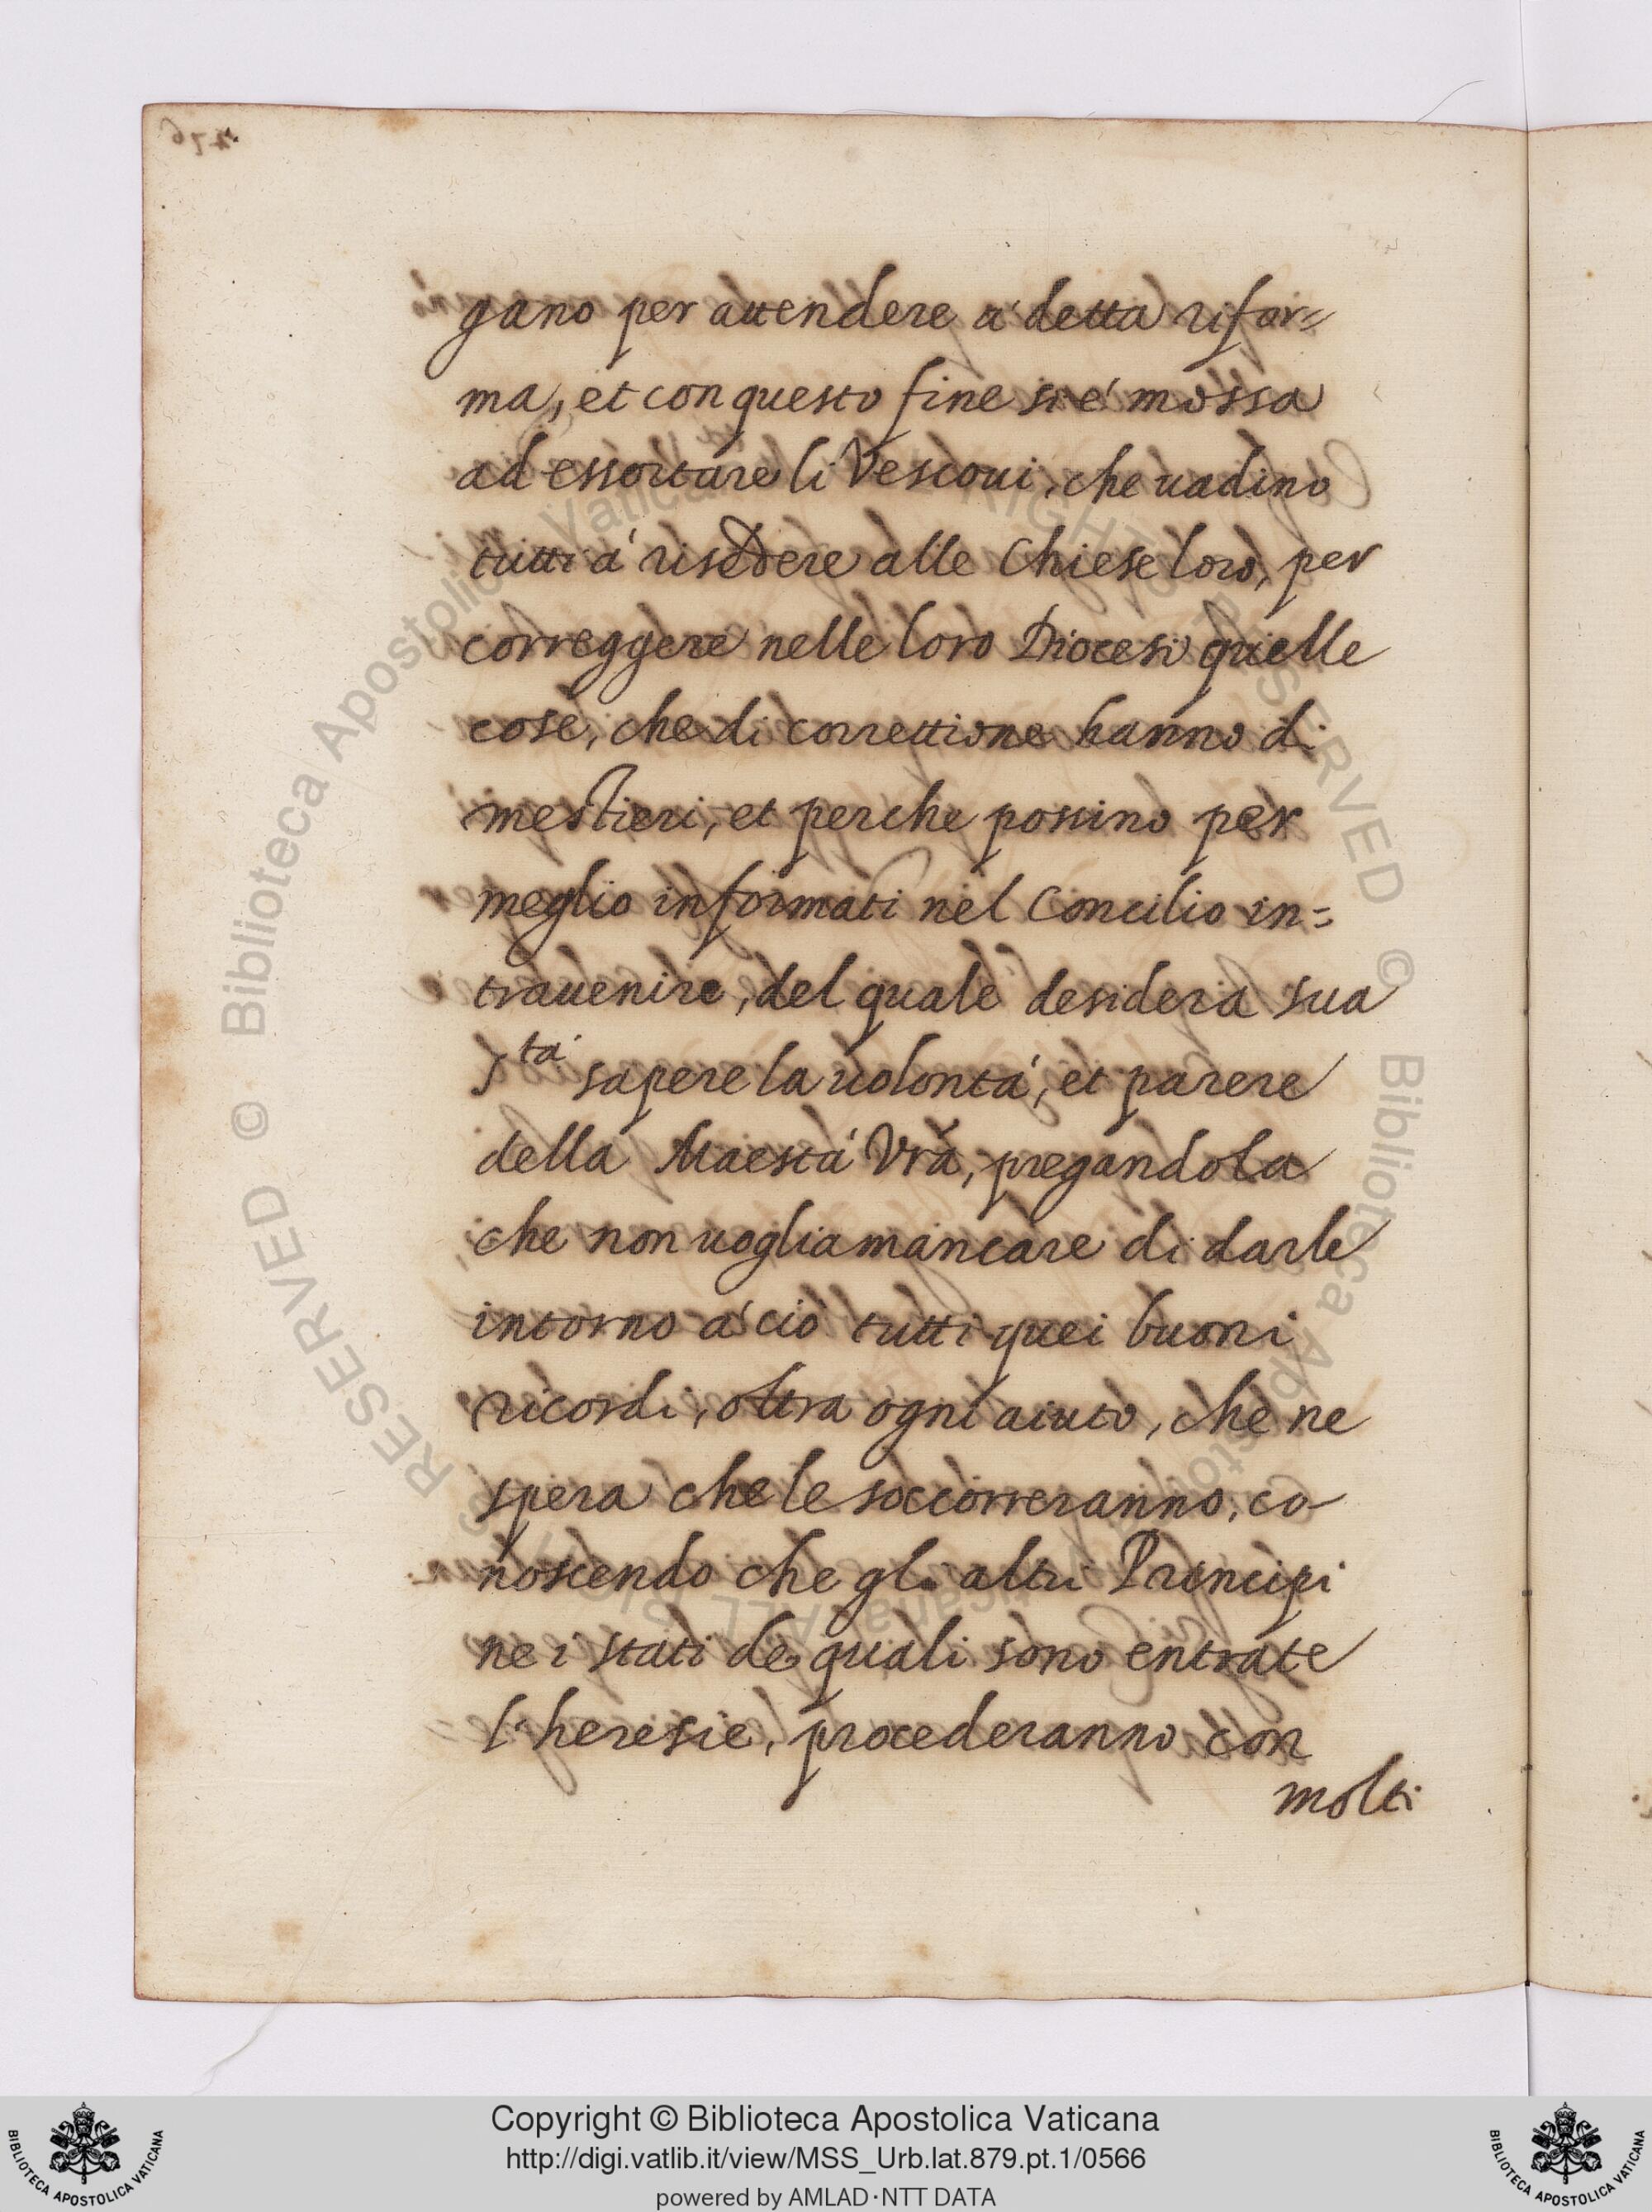 gano per attendere a' detta rifor=
ma, et con questo fine si e' mossa
ad essortare li Vescoui, che uadino
tutti a' risedere alle Chiese loro, per
correggere nelle loro Diocesi quelle
cose, che di correttione hanno di
mestieri, et perche possino per
meglio informati nel Concilio in=
trauenire, del quale desidera sua
S.tà sapere la uolontà, et parere
della Maestà Vra, pregandola
che non uoglia mancare di darle
intorno a' ciò tutti quei buoni
ricordi, oltra ogni aiuto, che ne
spera che le soccorreranno, co-
noscendo che gli altri Principi
ne i stati de quali sono entrate
l'heresie, procederanno con
molti
Copyright © Biblioteca Apostolica Vaticana
http://digi.vatlib.it/view/MSS_Urb.lat.879.pt.1/0566
powered by AMLAD·NTT DATA
BIBLIOTECA APOSTOLICA VATICANA
BIBLIOTECA APOSTOLICA VATICANA